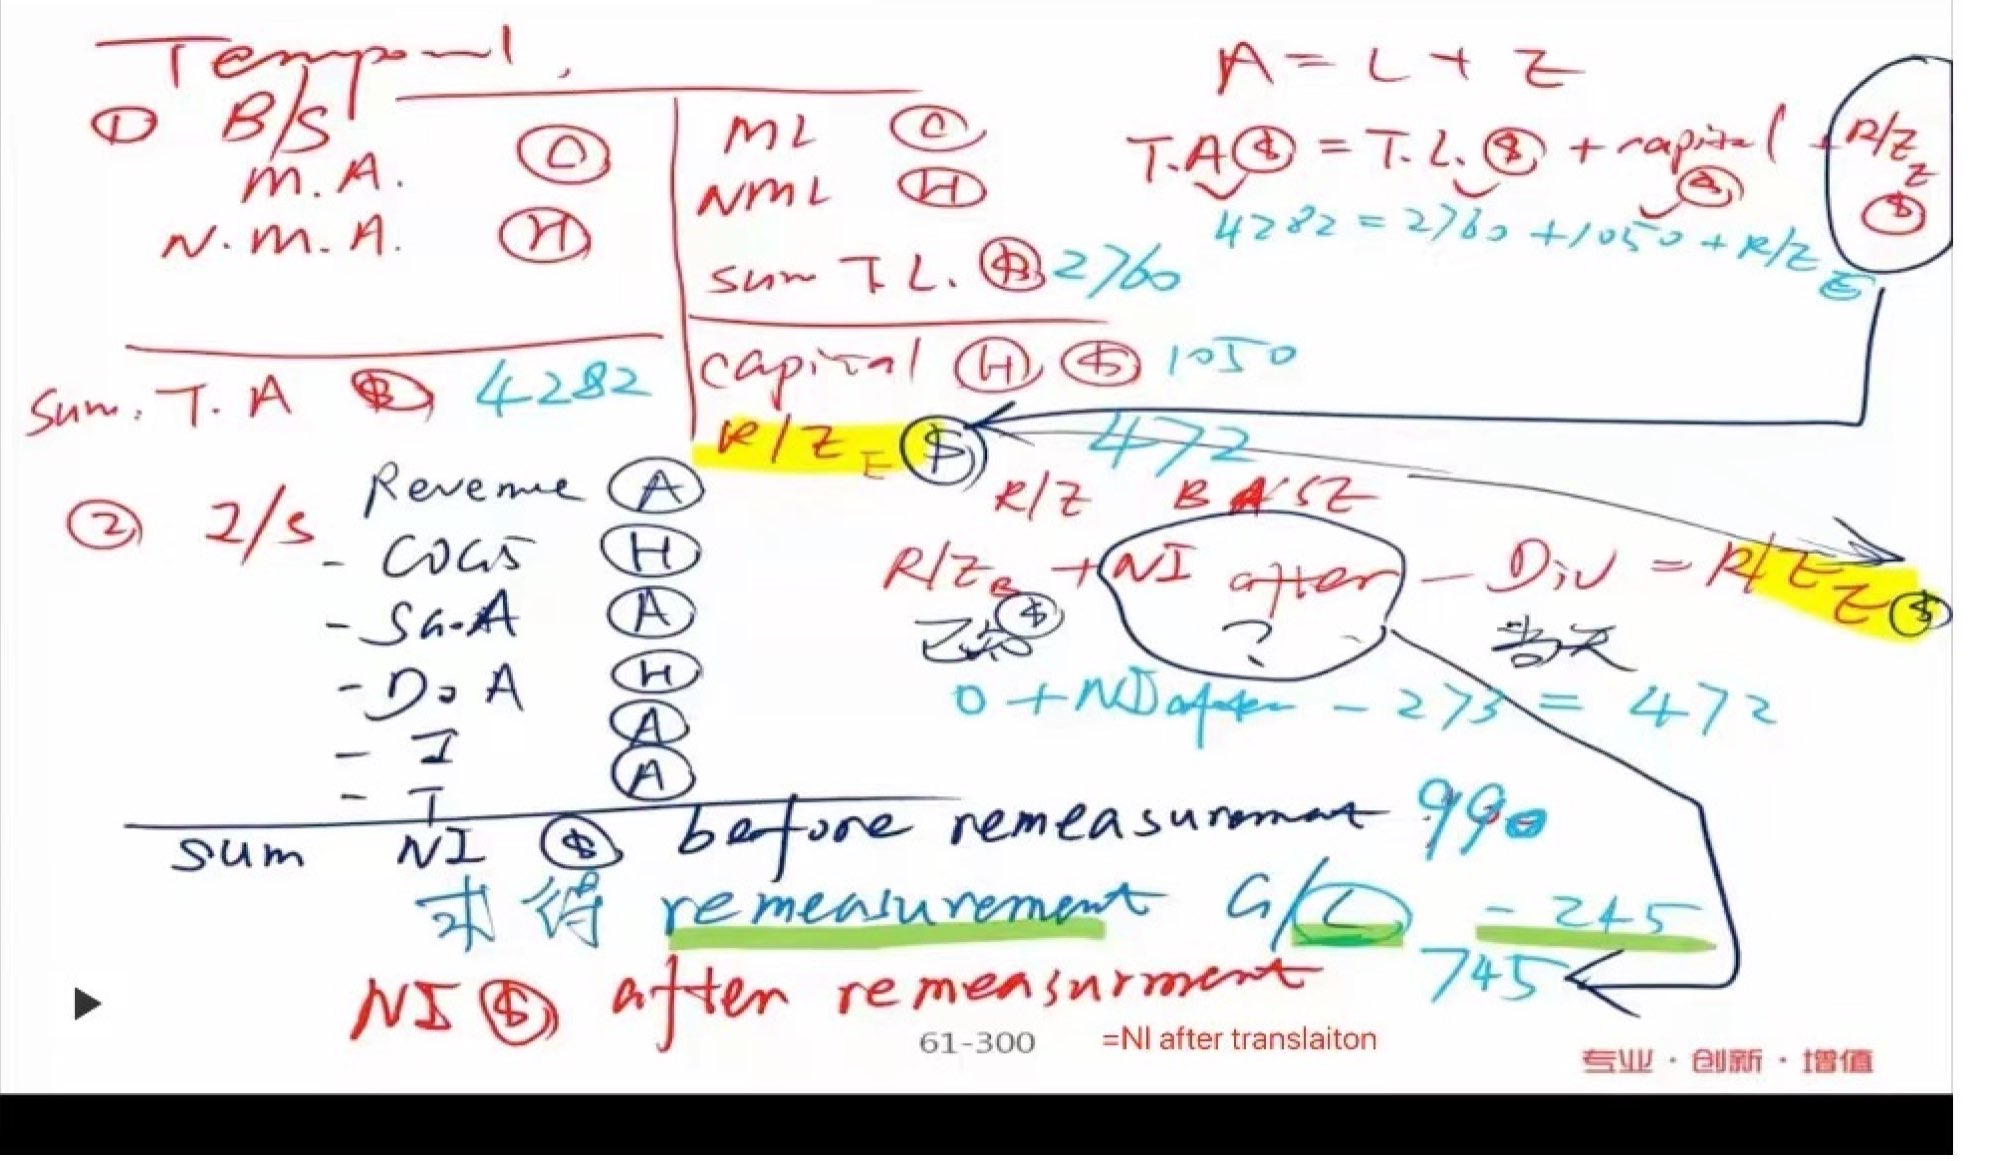 Temporal.
A = L + E
① B/S
M.A. Ⓒ
N.M.A. Ⓗ
Sum. T.A $ 4282
ML Ⓒ
NML Ⓗ
sum T L. $ 2760
capital Ⓗ $ 1050
R/E E $ 472
T.A $ = T.L. $ + capital $ + R/E E $
4282 = 2760 + 1050 + R/E E
② I/S
Revenue Ⓐ
- COGS Ⓗ
- SG&A Ⓐ
- D&A Ⓗ
- I Ⓐ
- T Ⓐ
R/E BASE
R/E B $ + NI after - Div = R/E E $
已知 ? 当天
0 + NI after - 273 = 472
sum NI $ before remeasurement 990
求得 remeasurement G/L - 245
NI $ after remeasurment 745
61-300
=NI after translaiton
专业 · 创新 · 增值